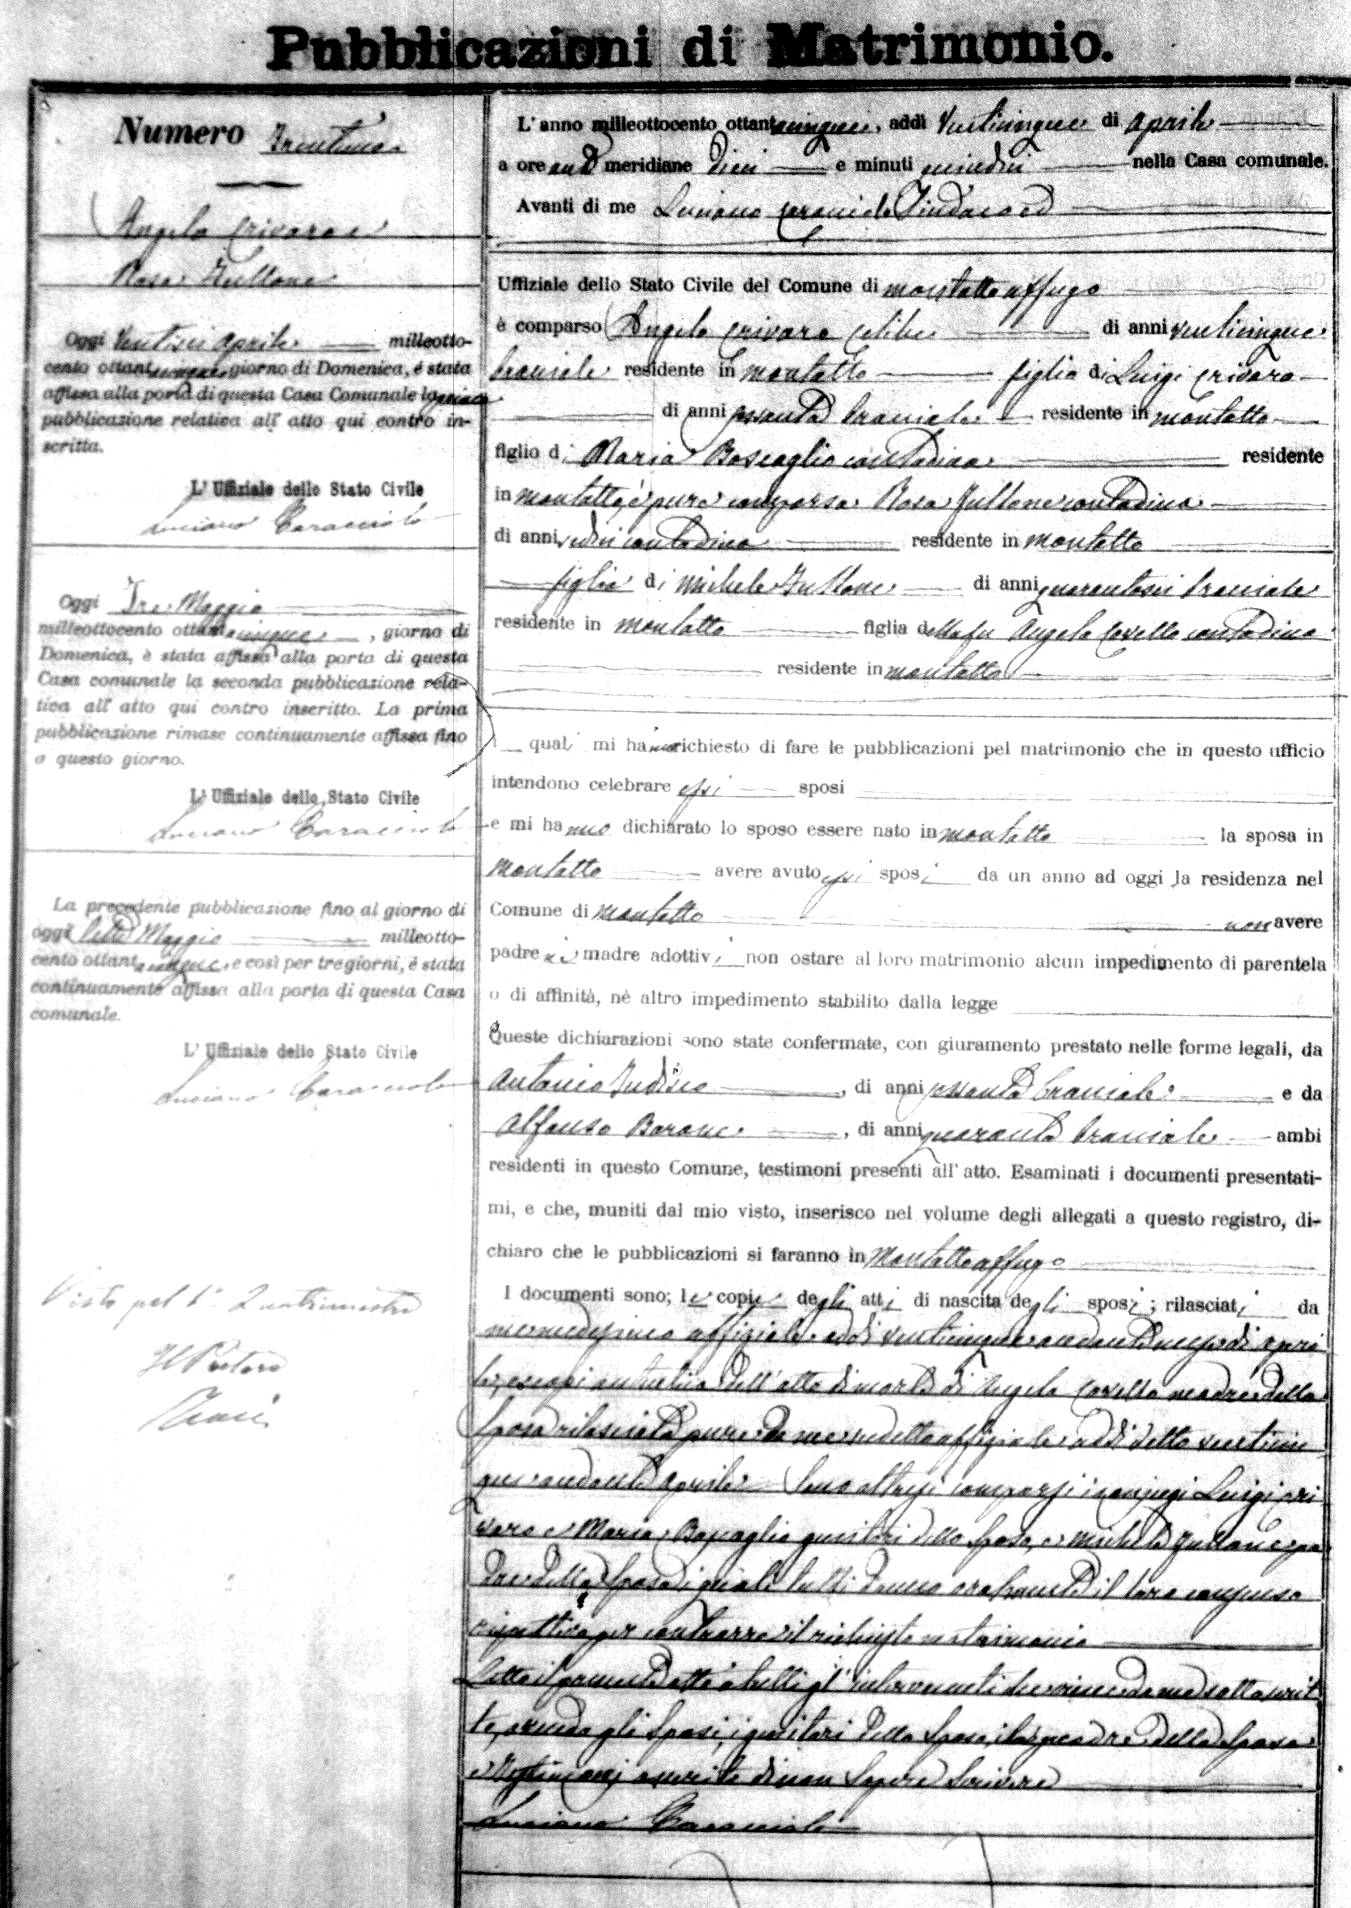 Pubblicazioni di Matrimonio.
Numero Trentuno
Angelo Crivaro e
Rosa Fullone
Oggi Ventisei Aprile milleotto-
cento ottantacinque giorno di Domenica, è stata
affissa alla porta di questa Casa Comunale la prima
pubblicazione relativa all' atto qui contro in-
scritta.
L' Uffiziale dello Stato Civile
Luciano Caracciolo
Oggi Tre Maggio
milleottocento ottantacinque, giorno di
Domenica, è stata affissa alla porta di questa
Casa comunale la seconda pubblicazione rela-
tica all' atto qui contro inscritto. La prima
pubblicazione rimase continuamente affissa fino
a questo giorno.
L' Uffiziale dello Stato Civile
Luciano Caracciolo
La precedente pubblicazione fino al giorno di
oggi Sette Maggio milleotto-
cento ottantacinque, e così per tre giorni, é stata
continuamente affissa alla porta di questa Casa
comunale.
L' Uffiziale dello Stato Civile
Luciano Caracciolo
Visto pel 1º Quatrimestre
Il Pretore
L' anno milleottocento ottantacinque, addì Venticinque di Aprile
a ore anti meridiane dieci e minuti quindici nella Casa comunale.
Avanti di me Luciano Caracciolo Sindaco ed
Uffiziale dello Stato Civile del Comune di Montalto Uffugo
è comparso Angelo Crivaro celibe di anni venticinque
bracciale residente in Montalto figlio di Luigi Crivaro
di anni sessanta bracciale residente in Montalto
figlio di Maria Boscaglia contadina residente
in Montalto, è pure comparsa Rosa Fullone contadina
di anni sedici contadina residente in Montalto
figlia di Michele Fullone di anni quarantasei bracciale
residente in Montalto figlia della fu Angela Covello contadina
residente in Montalto
i quali mi hanno richiesto di fare le pubblicazioni pel matrimonio che in questo ufficio
intendono celebrare essi sposi
e mi hanno dichiarato lo sposo essere nato in Montalto la sposa in
Montalto avere avuto essi sposi da un anno ad oggi la residenza nel
Comune di Montalto non avere
padre nè madre adottivi non ostare al loro matrimonio alcun impedimento di parentela
o di affinità, nè altro impedimento stabilito dalla legge
Queste dichiarazioni sono state confermate, con giuramento prestato nelle forme legali, da
Antonio, di anni sessanta bracciale e da
Alfonso Barone, di anni quaranta bracciale ambi
residenti in questo Comune, testimoni presenti all' atto. Esaminati i documenti presentati-
mi, e che, muniti dal mio visto, inserisco nel volume degli allegati a questo registro, di-
chiaro che le pubblicazioni si faranno in Montalto Uffugo
I documenti sono; le copie degli atti di nascita degli sposi; rilasciati da
me medesimo uffiziale addì venticinque andante mese di Apri
le, e copia autentica dell' atto di morte di Angela Covello madre della
sposa rilasciata pure da me sudetto uffiziale addì detto venticin
que andante Aprile Sono altresì comparsi i coniugi Luigi Cri
varo e Maria Boscaglia genitori dello sposo, e Michele Fullone pa
dre della sposa i quali tutti danno il loro consenso
rispettivo per contrarre il richiesto matrimonio
Letto il presente atto a tutti gl' intervenuti da me sottoscrit
to, avendo gli sposi, i genitori dello sposo, il padre della sposa
e testimoni asserito di non sapere scrivere
Luciano Caracciolo